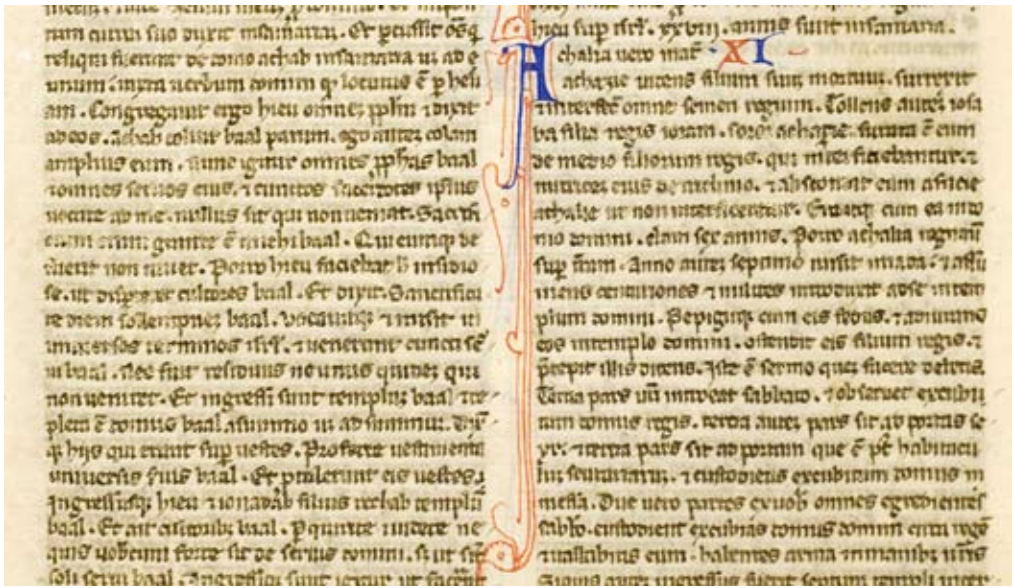 rum curru suo duxit insamariā. Et percussit oēs q̄
reliqui fuerant de domo achab insamaria usq; ad
unum. iuxta uerbum domini qd̄ locutus ē p heli
am. Congregauit ergo hieu omnē pplm ⁊ dixit
ad eos. Achab coluit baal parum. ego autē colam
amplius eum. nunc igitur omnes pphās baal
⁊ omnes seruos eius. ⁊ cunctos sacerdotes ipsius
uocate ad me. nullus sit qui non ueniat. Sacrifi
cium enim grande ē michi baal. Quicumq; de
fuerit non uiuet. Porro hieu faciebat h̄ insidio
se. ut disperdet cultores baal. Et dixit. Sanctifica
te diem sollempnē baal. uocauitq; ⁊ misit in
uniuersos terminos isrl̄. ⁊ uenerunt cuncti ser
ui baal. Nec fuit residuus ne unus quidē qui
non ueniret. Et ingressi sunt templū baal ⁊ re
pleta ē domus baal asummo usq; ad summū.
hijs qui erant sup uestes. Proferte uestimenta
uniuersis seruis baal. Et protulerunt eis uestes.
Ingressusq; hieu ⁊ ionadab filius rechab templū
baal. Et ait cultorib; baal. Perquirite ⁊ uidete ne
quis uobcum forte sit de seruis domini. s; ut sit
soli serui baal. Ingressi sunt igitur ut facerēt
hieu sup isrl̄. xxviii. annis sunt insamaria.
Athalia uero mat̄ XI
achazie uidens filium suū mortuū. surrexit
⁊ interfecit omne semen regium. Tollens autē iosa
ba filia regis ioram. soror achazie. furata ē eum
de medio filiorum regis. qui interficiebantur. ⁊
nutricē eius de triclinio. ⁊ abscondit eum afacie
athalie ut non interficeretur. Eratq; cum ea indo
mo domini. clam sex annis. Porro athalia regnauit
sup terram. Anno autē septimo misit ioiada. ⁊ assu
mens centuriones ⁊ milites introduxit adse intem
plum domini. Pepigitq; cum eis fedus. ⁊ adiurans
eos intemplo domini. ostendit eis filium regis. ⁊
p̄cepit illis dicens. Iste ē sermo quē facere debetis.
Tertia pars urm̄ introeat sabbato. ⁊ obseruet excubi
tum domus regis. tertia autē pars sit ad portas se
yr. ⁊ tertia pars sit ad portam que ē pt̄ habitacu
lum scutariorū. ⁊ custodietis excubitum domus in
messa. Due uero partes exuob̄ omnes egredientes
sabb̄o. custodient excubias domus domini circa regē
⁊ uallabitis eum. habentes arma inmanib; uris
Siquis autē ingressus fuerit septum templi